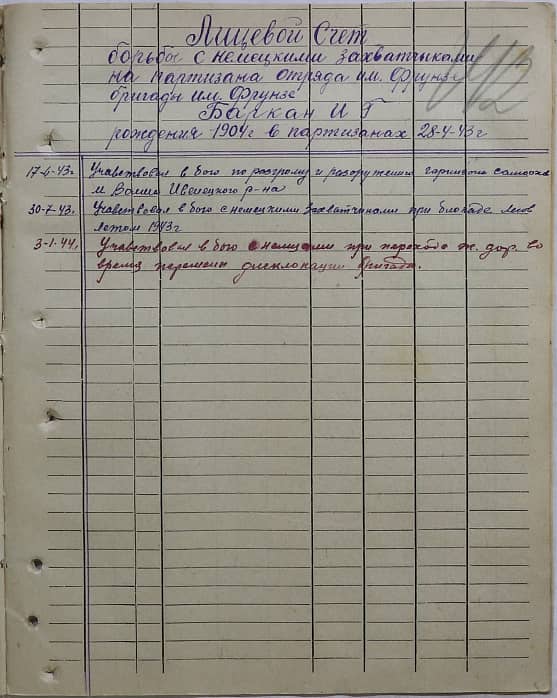 Лицевой Счет
борьбы с немецкими захватчиками
на партизана отряда им. Фрунзе
бригады им. Фрунзе
Баркан И Г
рождения 1904г в партизанах 28-4-43г
17-6-43г. Учавствовал в бою по разгрому и разоружению гарнизона самоохов
м Волма Ивенецкого р-на
30-7-43. Учавствовал в бою с немецкими захватчиками при блокаде лесов
летом 1943г
3-1-44. Учавствовал в бою с немцами при переходе ж. дор. во
время перемены дислокации бригады.